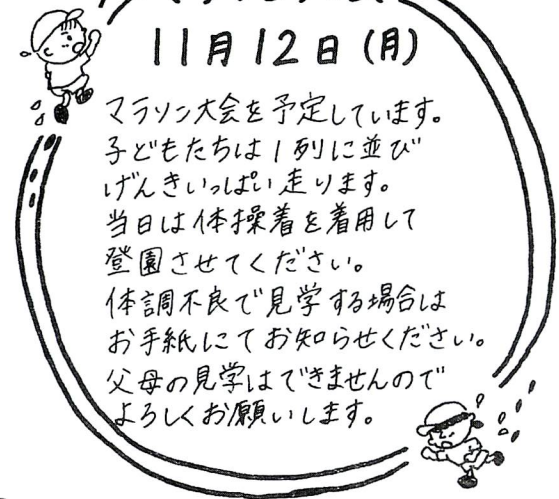 11月12日(月)
マラソン大会を予定しています。
子どもたちは1列に並び
げんきいっぱい走ります。
当日は体操着を着用して
登園させてください。
体調不良で見学する場合は
お手紙にてお知らせください。
父母の見学はできませんので
よろしくお願いします。